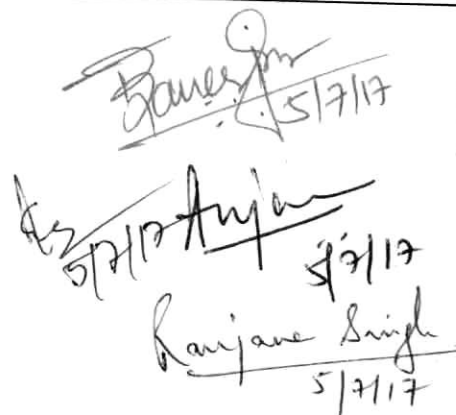 5/7/17
5/7/17 Anjan
5/7/17
Ranjana Singh
5/7/17